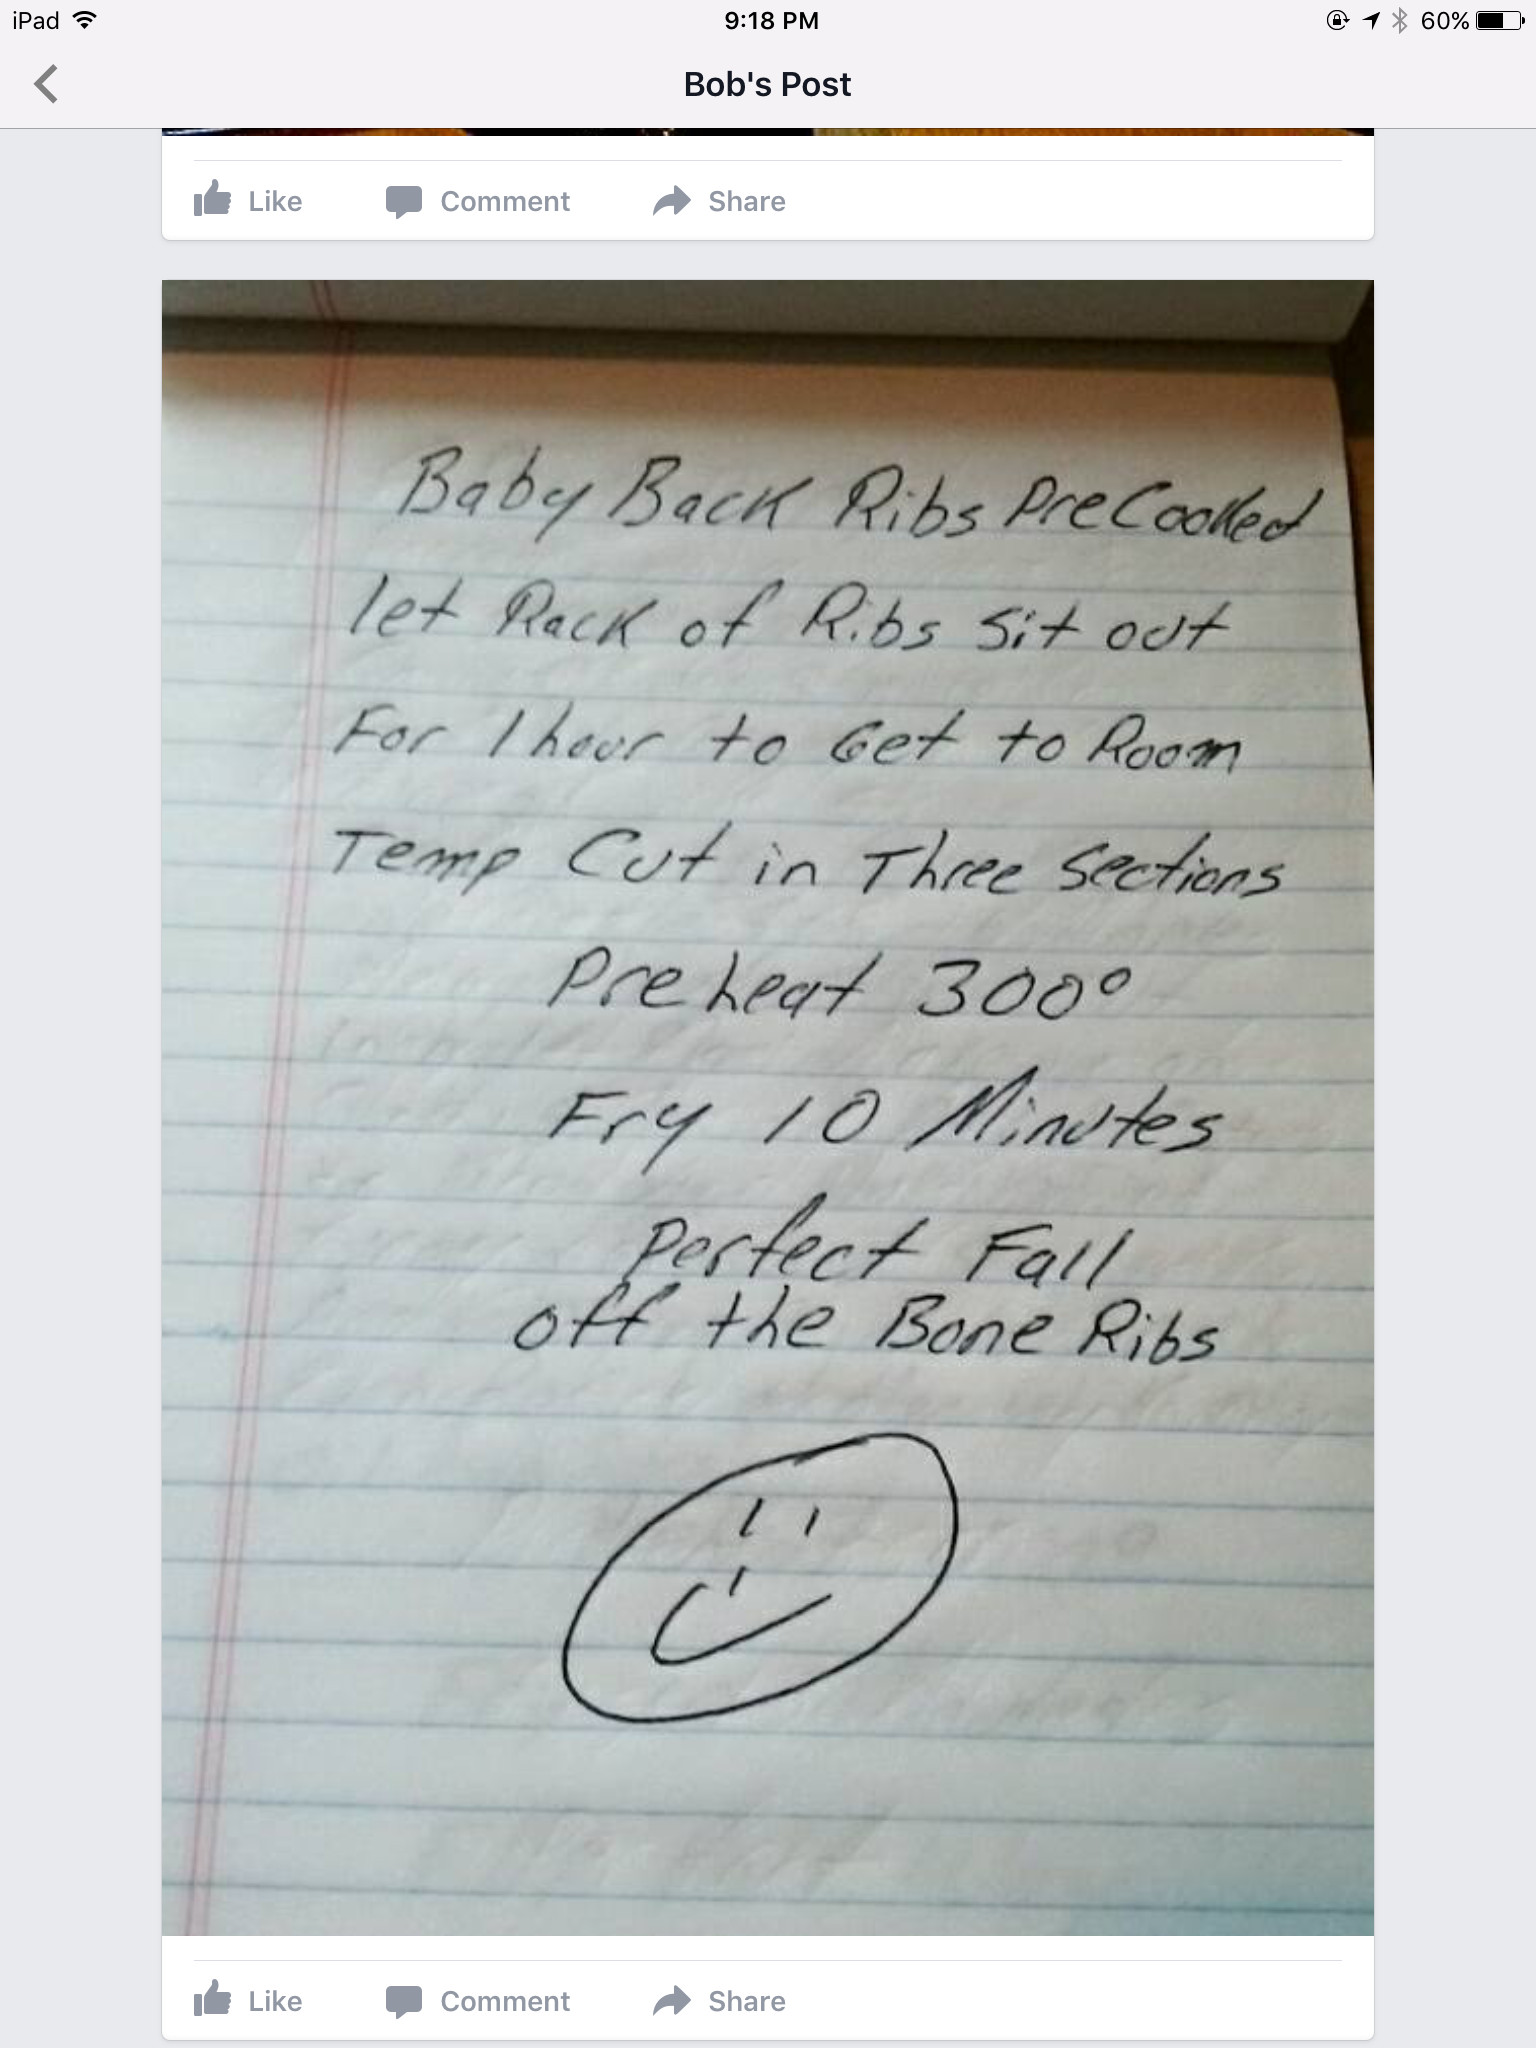 iPad 9:18 PM 60%
Bob's Post
Like Comment Share
Baby Back Ribs PreCooked
let Rack of Ribs Sit out
For 1 hour to Get to Room
Temp Cut in Three Sections
Preheat 300°
Fry 10 Minutes
Perfect Fall
off the Bone Ribs
Like Comment Share